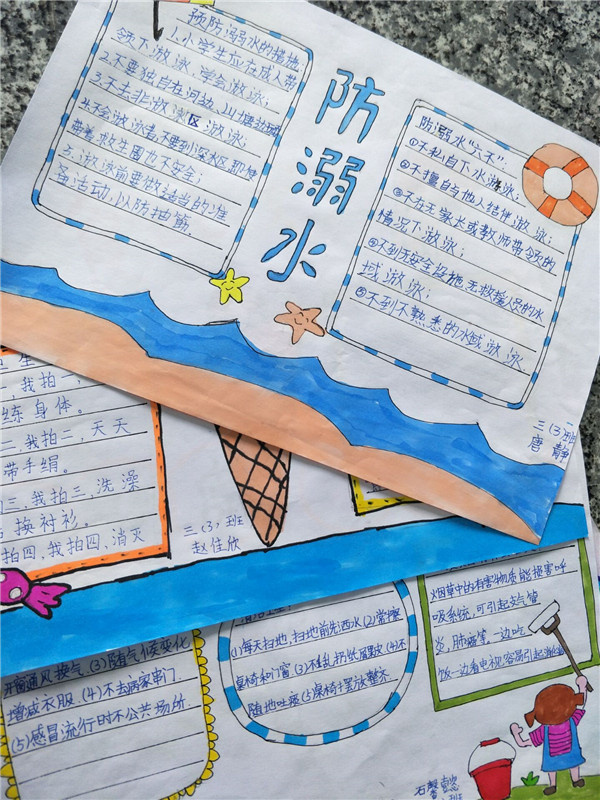 预防溺水的措施
1.小学生应在成人带
领下游泳,学会游泳;
2.不要独自在河边、山塘边
3.不去非游泳区游泳;
4.不会游泳者,不要到深水区,即使
带着救生圈也不安全;
5.游泳前要做适当的准
备活动,以防抽筋.
防溺水
防溺水"六不":
①不私自下水游泳;
②不擅自与他人结伴游泳;
③不在无家长或教师带领的
情况下游泳;
④不到无安全设施、无救援人员的水
域游泳;
⑤不到不熟悉的水域游泳
三(3)班
唐静
,我拍一,
练身体。
二,我拍二,天天
带手绢。
三,我拍三,洗澡
换衬衫。
拍四,我拍四,消灭
三(3)班
赵佳欣
开窗通风换气.(3)随气候变化
增减衣服.(4)不去病家串门.
(5)感冒流行时不公共场所.
(1)每天扫地,扫地前先洒水(2)常擦
桌椅和门窗(3)不乱扔纸屑果皮(4)不
随地吐痰(5)桌椅摆放整齐.
烟草中的有害物质能损害呼
吸系统,可引起支气管
炎,肺癌等.一边吃
饭一边看电视容易引起
石馨
班